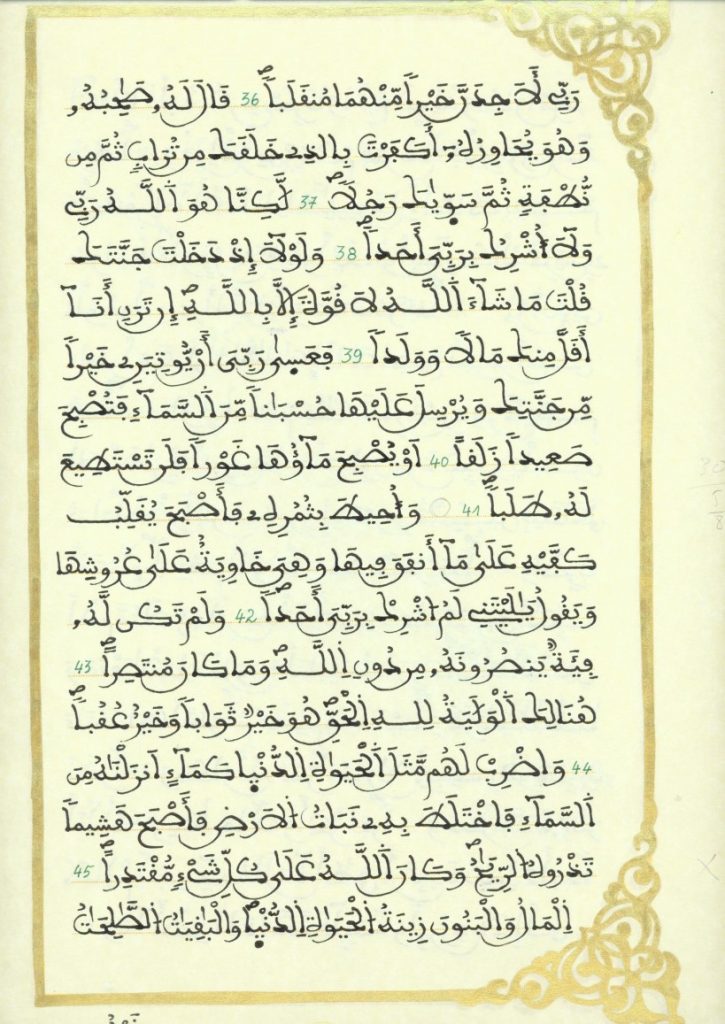 رَبِّے لَأَجِدَنَّ خَيْراً مِّنْهُمَا مُنقَلَباً 36 قَالَ لَهُۥ صَٰحِبُهُۥ
وَهُوَ يُحَاوِرُهُۥٓ أَكَفَرْتَ بِالذِے خَلَقَكَ مِن تُرَابٖ ثُمَّ مِن
نُّطْفَةٖ ثُمَّ سَوّٜىٰكَ رَجُلاً 37 لَّٰكِنَّا هُوَ اَ۬للَّهُ رَبِّے
وَلَآ أُشْرِكُ بِرَبِّيَ أَحَداً 38 وَلَوْلَآ إِذْ دَخَلْتَ جَنَّتَكَ
قُلْتَ مَا شَآءَ اَ۬للَّهُ لَا قُوَّةَ إِلَّا بِاللَّهِ إِن تَرَنِۦٓ أَنَآ
أَقَلَّ مِنكَ مَالاً وَوَلَداً 39 فَعَسٜىٰ رَبِّيَ أَنْ يُّوتِيَنِۦ خَيْراً
مِّن جَنَّتِكَ وَيُرْسِلَ عَلَيْهَا حُسْبَاناً مِّنَ اَ۬لسَّمَآءِ فَتُصْبِحَ
صَعِيداً زَلَقاً 40 اَوْ يُصْبِحَ مَآؤُهَا غَوْراً فَلَن تَسْتَطِيعَ
لَهُۥ طَلَباً 41 وَأُحِيطَ بِثُمُرِهِۦ فَأَصْبَحَ يُقَلِّبُ
كَفَّيْهِ عَلَىٰ مَآ أَنفَقَ فِيهَا وَهِيَ خَاوِيَةٌ عَلَىٰ عُرُوشِهَا
وَيَقُولُ يَٰلَيْتَنِے لَمُ ا۟شْرِكْ بِرَبِّيَ أَحَداً 42 وَلَمْ تَكُن لَّهُۥ
فِئَةٌ يَنصُرُونَهُۥ مِن دُونِ اِ۬للَّهِ وَمَا كَانَ مُنتَصِراً 43
هُنَالِكَ اَ۬لْوَلَٰيَةُ لِلهِ اِ۬لْحَقِّ هُوَ خَيْرٌ ثَوَاباً وَخَيْرٌ عُقُباً
44 وَاضْرِبْ لَهُم مَّثَلَ اَ۬لْحَيَوٰةِ اِ۬لدُّنْيٜا كَمَآءٍ اَنزَلْنَٰهُ مِنَ
اَ۬لسَّمَآءِ فَاخْتَلَطَ بِهِۦ نَبَاتُ اُ۬لَارْضِ فَأَصْبَحَ هَشِيماً
تَذْرُوهُ اُ۬لرِّيَٰحُ وَكَانَ اَ۬للَّهُ عَلَىٰ كُلِّ شَےْءٖ مُّقْتَدِراً 45
اِ۬لْمَالُ وَالْبَنُونَ زِينَةُ اُ۬لْحَيَوٰةِ اِ۬لدُّنْيٜا وَالْبَٰقِيَٰتُ اُ۬لصَّٰلِحَٰتُ